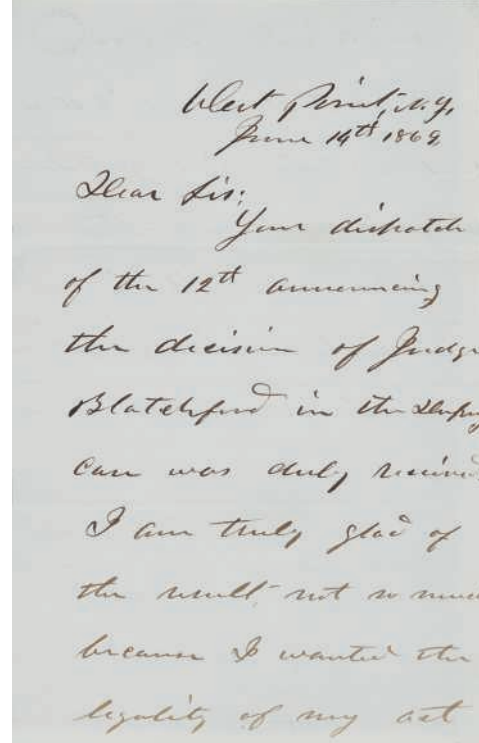 West Point, N.Y.
June 14th 1869
Dear Sir:
Your dispatch
of the 12th announcing
the decision of Judge
Blatchford in the
case was duly received
I am truly glad of
the result not so much
because I wanted the
legality of my act